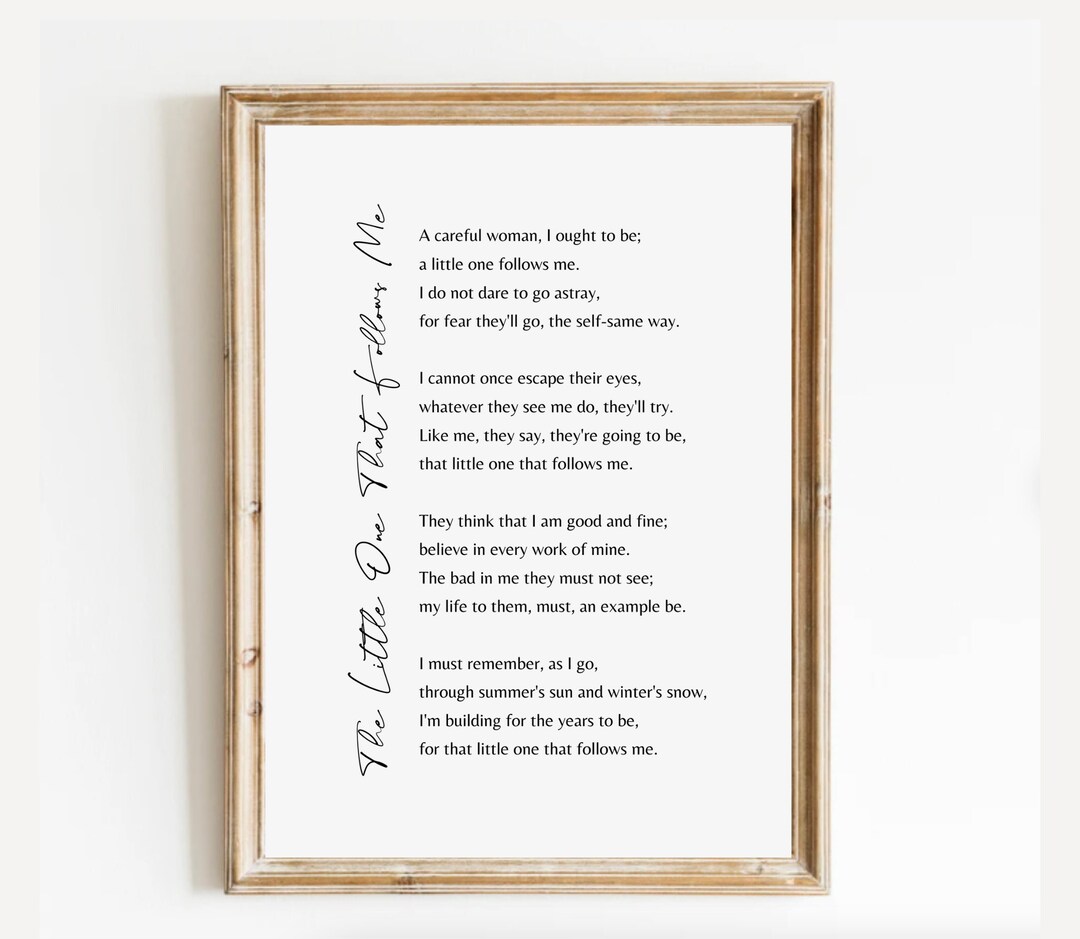 The Little One That Follows Me
A careful woman, I ought to be;
a little one follows me.
I do not dare to go astray,
for fear they'll go, the self-same way.
I cannot once escape their eyes,
whatever they see me do, they'll try.
Like me, they say, they're going to be,
that little one that follows me.
They think that I am good and fine;
believe in every work of mine.
The bad in me they must not see;
my life to them, must, an example be.
I must remember, as I go,
through summer's sun and winter's snow,
I'm building for the years to be,
for that little one that follows me.